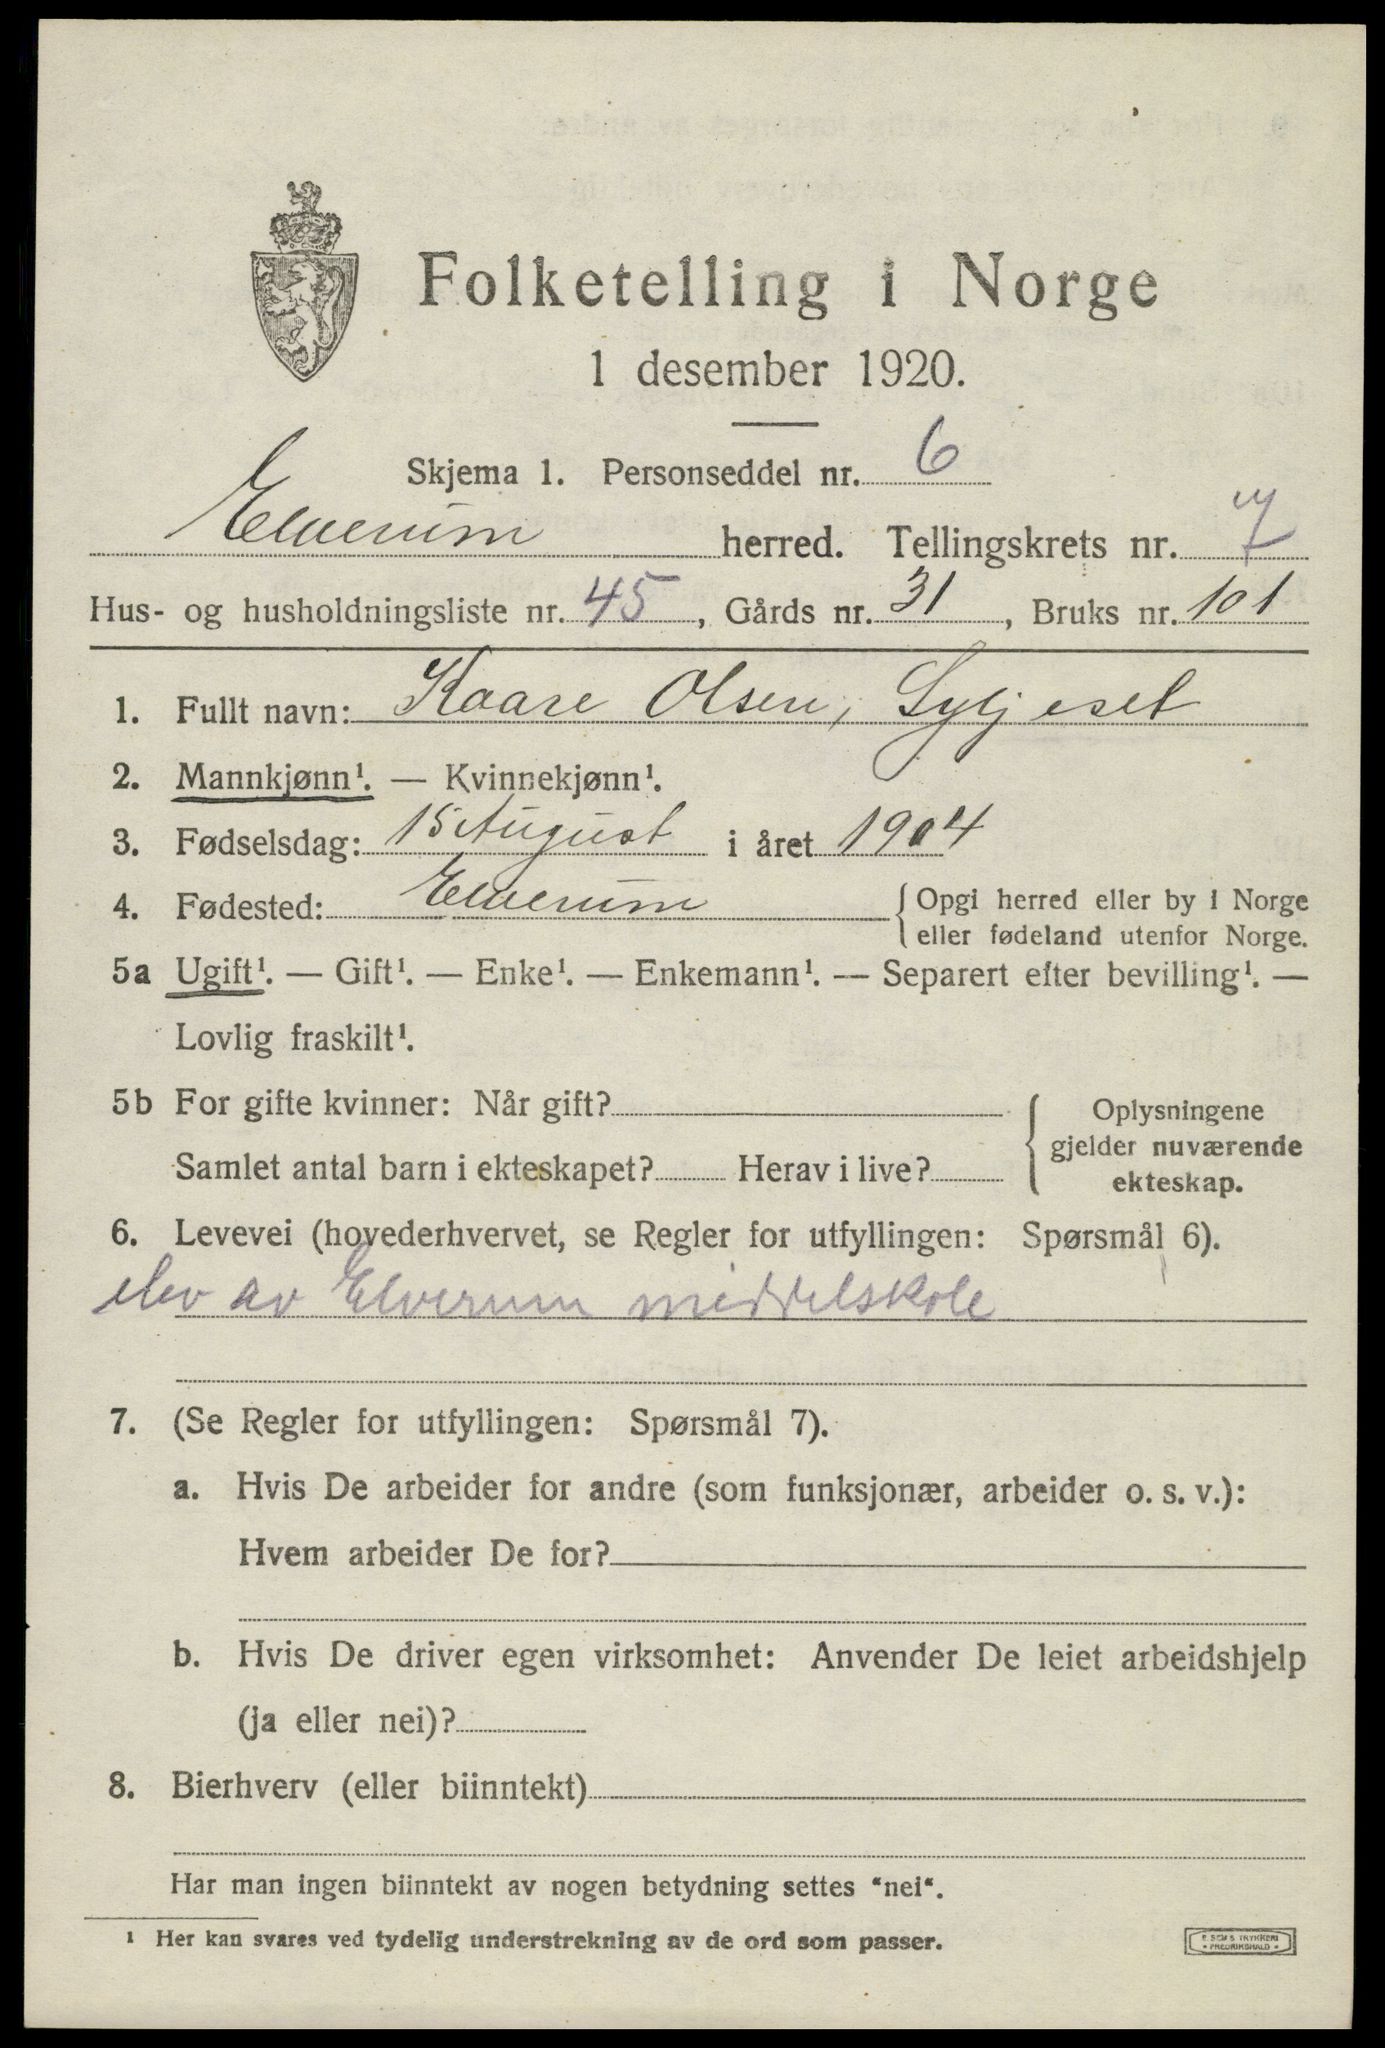 Folketelling i Norge
1 desember 1920.
Skjema 1. Personseddel nr. 6
Elverum herred. Tellingskrets nr. 7
Hus- og husholdningsliste nr. 45, Gårds nr. 31, Bruks nr. 101
1. Fullt navn: Kaare Olsen, Syljeset
2. Mannkjønn¹. — Kvinnekjønn¹.
3. Fødselsdag: 15 August i året 1904
4. Fødested: Elverum { Opgi herred eller by i Norge
eller fødeland utenfor Norge.
5a Ugift¹. — Gift¹. — Enke¹. — Enkemann¹. — Separert efter bevilling¹. —
Lovlig fraskilt¹.
5b For gifte kvinner: Når gift? { Oplysningene
gjelder nuværende
Samlet antal barn i ekteskapet? Herav i live?
ekteskap.
6. Levevei (hovederhvervet, se Regler for utfyllingen: Spørsmål 6).
elev av Elverum middelskole
7. (Se Regler for utfyllingen: Spørsmål 7).
a. Hvis De arbeider for andre (som funksjonær, arbeider o. s. v.):
Hvem arbeider De for?
b. Hvis De driver egen virksomhet: Anvender De leiet arbeidshjelp
(ja eller nei)?
8. Bierhverv (eller biinntekt)
Har man ingen biinntekt av nogen betydning settes “nei“.
¹ Her kan svares ved tydelig understrekning av de ord som passer.
E. SEM'S TRYKKERI
• FREDRIKSHALD •